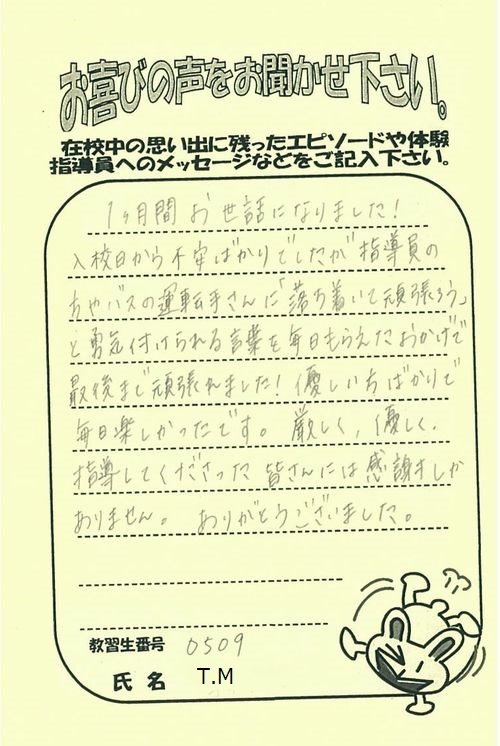 お喜びの声をお聞かせ下さい。
在校中の思い出に残ったエピソードや体験
指導員へのメッセージなどをご記入下さい。
1ヶ月間お世話になりました!
入校日から不安ばかりでしたが指導員の
方やバスの運転手さんに「落ち着いて頑張ろう」
と勇気付けられる言葉を毎日もらえたおかげで
最後まで頑張れました!優しい方ばかりで
毎日楽しかったです。厳しく、優しく、
指導してくださった皆さんには感謝しか
ありません。ありがとうございました。
教習生番号 0509
氏名 T.M